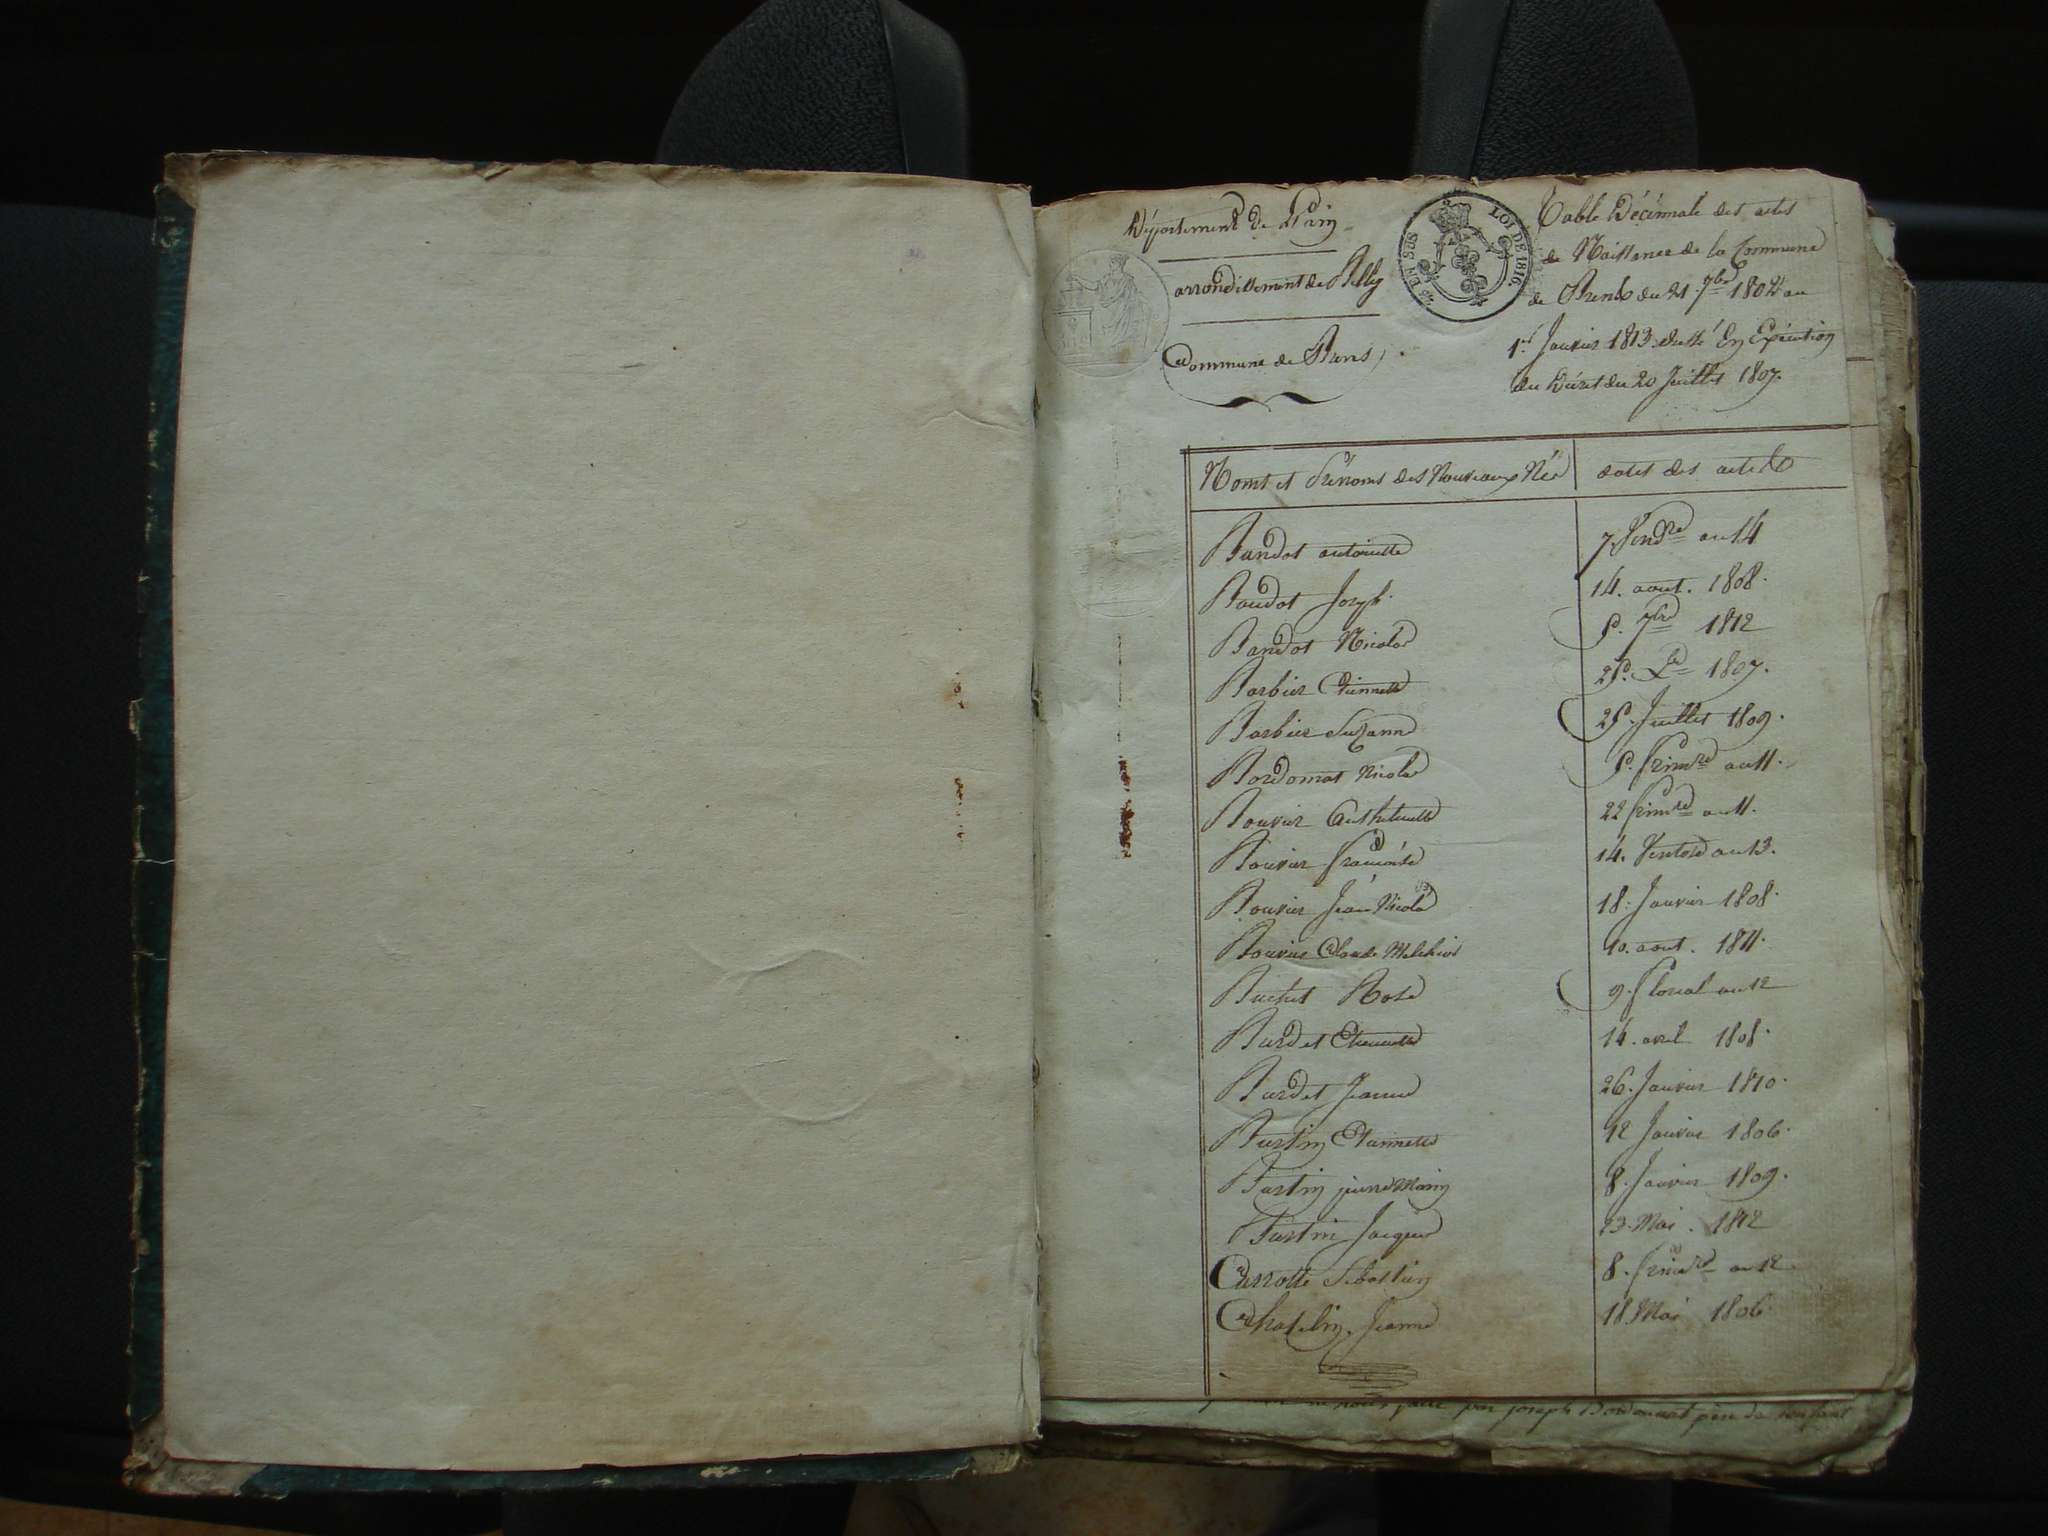 Département de L'ain
arrondissement de Belley
Commune de Brens
EN SUS
LOI DE 1816.
Table Décénnale des actes
de Naissance de la Commune
de Brens du 21 7bre 1802 au
1er Janvier 1813 dressé En Exécution
du Décret du 20 Juillet 1807.
Noms et Prénoms des Nouveaux Née
dates des actes
Baudot antoinette 7 Vendre an 14
Baudot Joseph 14. aout. 1808.
Baudot Nicolas 5. 7bre 1812
Barbier Etiennette 25. Xbre 1807.
Barbier Suzanne 25. Juillet 1809.
Bordomat Nicolas 5. frimre an 11.
Bouvier Anthelmette 22 frimre an 11.
Bouvier francoise 14. Ventose an 13.
Bouvier Jean Nicolas 18. Janvier 1808.
Bouvier Claude Melchior 10. aout. 1811.
Buchet Rose 9. floréal an 12
Burdet Etiennette 14. avril 1808.
Burdet Jeanne 26. Janvier 1810.
Burtin Etiennette 12 Janvier 1806.
Burtin pierre Marin 8. Janvier 1809.
Burtin Jacques 23. Mai. 1812
Carrotte Sébastien 8. frimre an 12
Chatelin Jeanne 18. Mai 1806.
par joseph Bordomat père de l'enfant